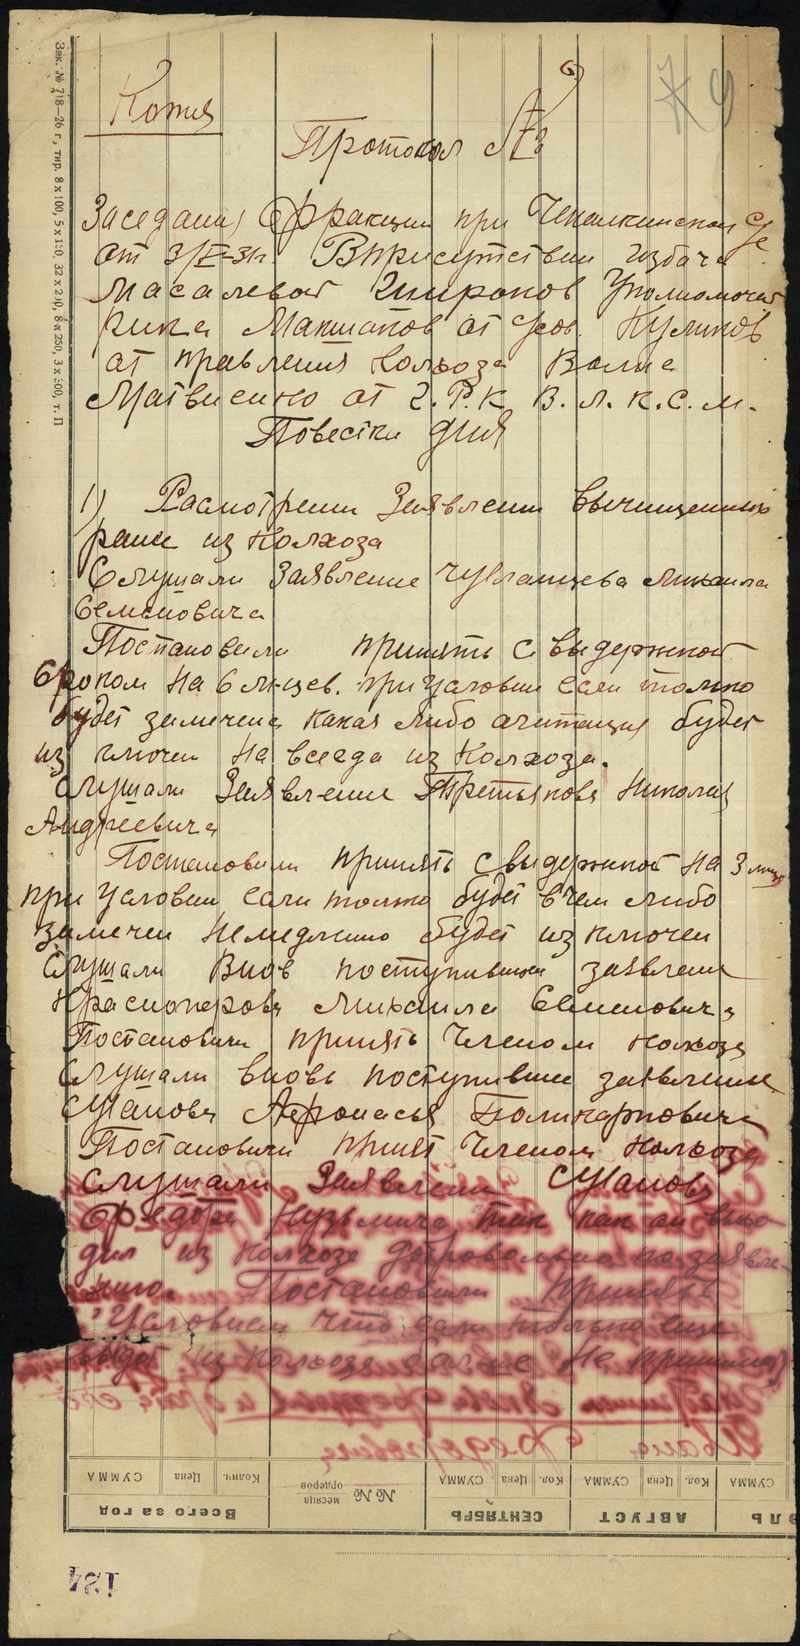 Копия
Протокол №
Заседания фракции при
от 3/I-31 г. Вприсутствии избача
Масалевой Широков Уполномочен
рика Макшанов от Куликов
от правления колхоза Волна
Матвиенко от 2. Р.К В.Л.К.С.М.
Повестка дня
1) Расмотрении Заявлении вычищенных
ранее из колхоза
Слушали Заявление Михаила
Семеновича
Постановили принять с выдержкой
Сроком на 6 м-цев. при условии если только
будет замечена какая либо агитация будет
из ключен на всегда из колхоза.
Слушали Заявление Третьякова Николая
Андреевича
Постановили принять с выдержкой на 3 м-ца
при условии если только будет в чем либо
замечен немедленно будет из ключен
Слушали Внов поступивши заявление
Красноперова Михаила Семеновича
Постановили принять Членом колхоза
Слушали вновь поступивши заявление
Сутанова Афонасья Поликарповича
Постановили принят Членом колхоза
Слушали Заявление Сутанова
Федора Кузьмича так как он выхо
дил из колхоза добровольно по заявле-
нию. Постановили принять
Условием что если только еще
выдет из колхоза дальше не принимать
Федоровича
СУММА Цена Колич. №№ месяца ордеров СУММА Цена Кол. СУММА Цена Кол. СУММА
Всего за год СЕНТЯБРЬ АВГУСТ
134
Зак. № 718—26 г., тир. 8 x 100, 5 x 150, 32 x 200, 8 x 250, 3 x 300, т. П